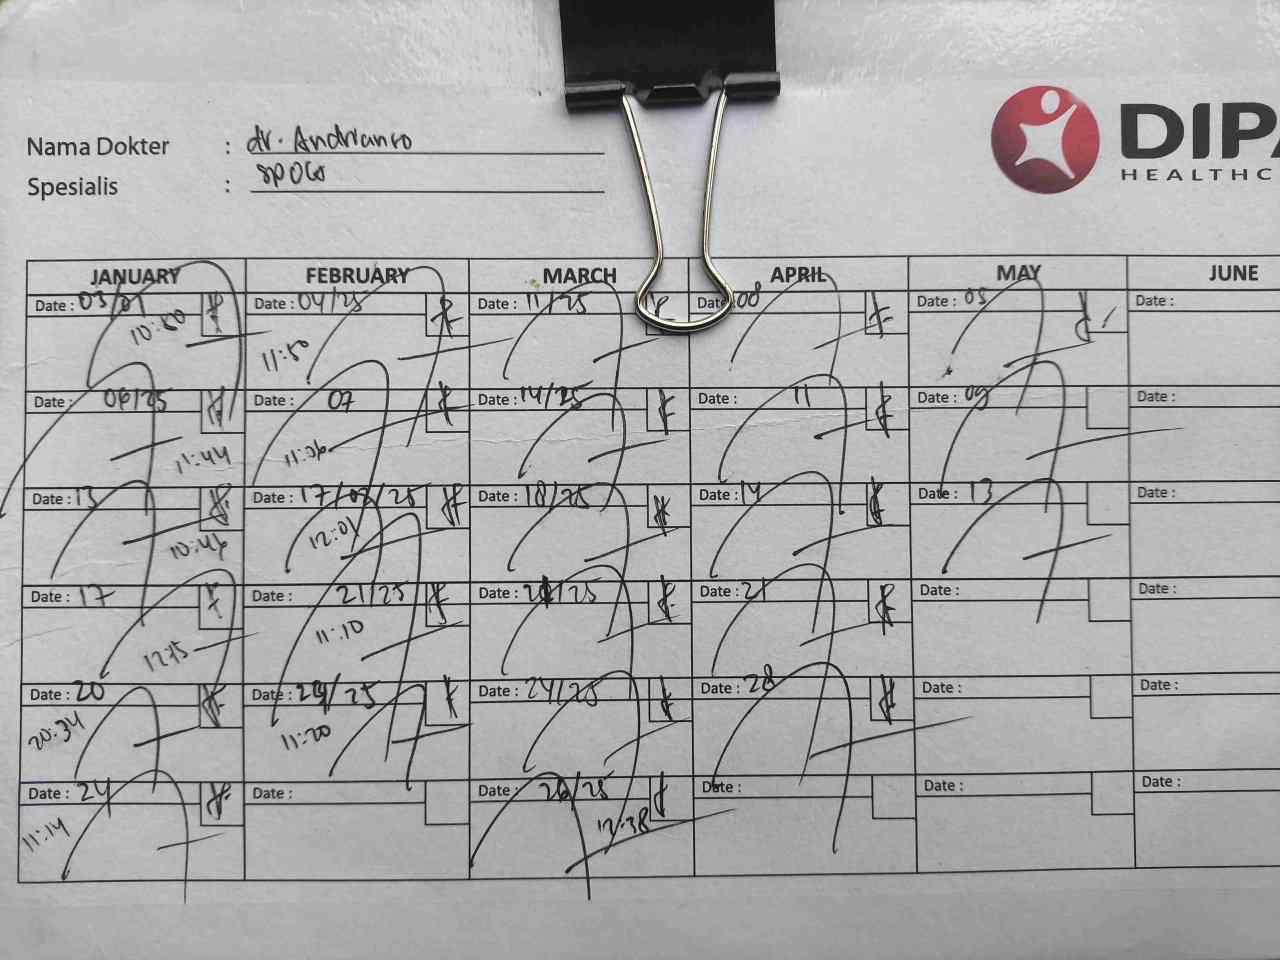 DIPA
HEALTHC
Nama Dokter : dr. Andrianro
Spesialis : SPOG
JANUARY FEBRUARY MARCH APRIL MAY JUNE
Date : 03/01 Date : 04/25 Date : 11/25 Date 08 Date : 05 Date :
10:50 11:50
Date : 06/25 Date : 07 Date : 14/25 Date : 11 Date : 09 Date :
11:44 11:06
Date : 13 Date : 17/02/25 Date : 18/25 Date : 14 Date : 13 Date :
10:46 12:01
Date : 17 Date : 21/25 Date : /25 Date : 21 Date : Date :
1275 11:10
Date : 20 Date : /25 Date : 24/25 Date : 28 Date : Date :
20:34 11:20
Date : 24 Date : Date : 26/25 Date : Date : Date :
11:14 12:38